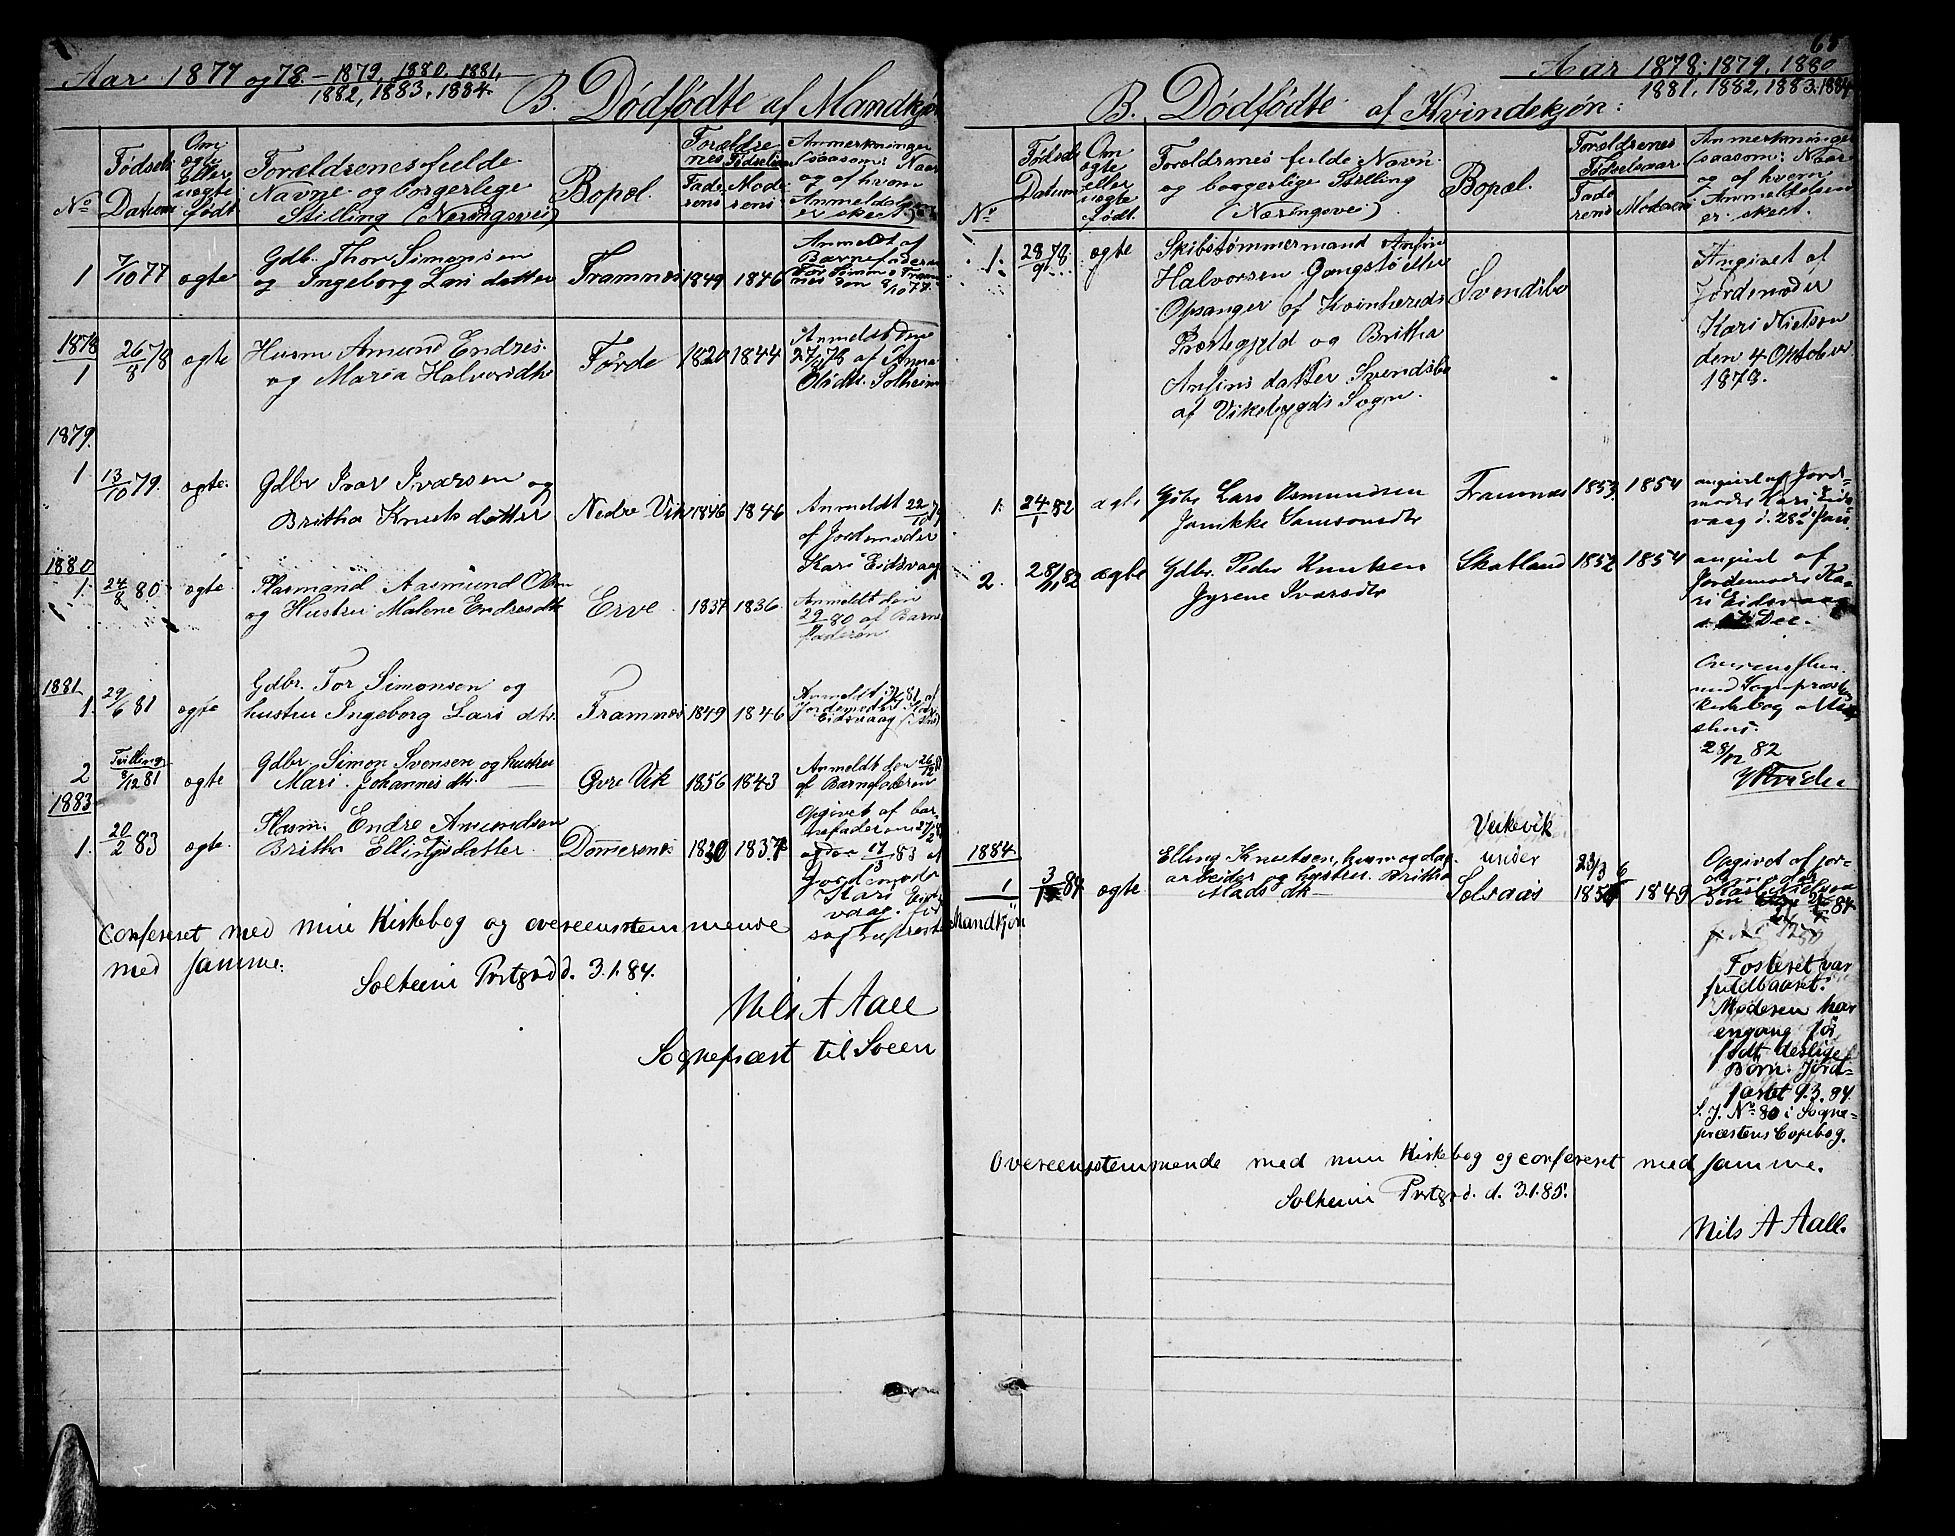 Aar 1877 og 78. – 1879, 1880, 1881,
1882, 1883, 1884.
B. Dödfödte af Mandkjøn
No
Fødsels Datum
Om ægte eller uægte født
Forældrenes fulde Navne og borgerlige Stilling (Næringsvei)
Bopæl.
Forældrenes Fødselsaar
Faderens
Moderens
Anmerkninger (saasom: Naar og af hvem Anmeldelsen er skeet)
1 7/10 77 ægte
Gdb. Thor Simonsen
og Ingeborg Larsdatter
Framnes 1849 1846
Anmeldt af
Barnefaderen
Tor Simons Framnes
den 8/10 77.
1878
1 26/8 78 ægte
Husm Amund Endres.
og Maria Halvorsdtr
Førde 1820 1844
Anmeldt den
27/8 78 af Anna
Olsdtr. Solheim
1879.
1 13/10 79. ægte.
Gdbr Ivar Ivarsen og
Britha Knutsdatter
Nedre Vik 1846 1846
Anmeldt 22/10 79
af Jordemoder
Kari Eidsvaag
1880
1. 24/8 80 ægte
Plasmand Aasmund Olsen
og Hustru Malene Endresdtr
Erve 1837 1836
Anmeldt den
29/8 80 af Barne
faderen
1881
1. 29/6 81 ægte
Gdbr. Tor Simonsen og
hustru Ingeborg Larsdtr.
Framnes 1849 1846
Anmeldt 81 af
Jordemoder Kari
Eidsvaag
2 Tvilling
8/12 81 ægte
Gdbr. Simon Svensen og hustru
Mari Johannesdtr.
Øvre Vik 1856 1843
Anmeldt den 26/12
af Barnefaderen
1883
1. 20/2 83 ægte.
Plasm. Endre Amundsen
Britha Ellingsdatter.
Dommersnes 1830 1837
Opgivet af bar-
nefaderen 27/2
17/3 83 af
Jordemoder
Kari Eids
vaag.
Confereret med min Kirkebog og overeensstemmende
med samme.
Solheim Præstgrd d. 3.1.84.
Nils A Aall
Sognepræst til Sveen
65
Aar 1878, 1879, 1880
1881, 1882, 1883, 1884
B. Dödfödte af Kvindekjön:
No
Fødsels Datum
Om ægte eller uægte født.
Forældrenes fulde Navn og borgerlige Stilling (Næringsvei)
Bopæl.
Forældrenes Fødselsaar
Faderens
Moderens
Anmerkninger (saasom: Naar og af hvem Anmeldelsen er skeet.
1. 28/9 78 ægte
Skibstømmermand Anfin
Halvorsen Gangstø eller
Opsanger af Kvinherreds
Præstegjeld og Britha
Anfinsdatter Svendsbø
af Vikebygds Sogn.
Svendsbø
Angivet af
Jordemoder
Kari Nielsen
den 4 Oktober
1878.
1. 24/1 82 ægte
Gdbr Lars Osmundsen
Janikke Samsonsdtr
Framnes 1853 1854
angivet af Jord-
moder Kari Eids
vaag d. 28de Jan
2. 28/11 82 ægte
Gdbr. Peder Knutsen
Jyrene Ivarsdtr
Skatland 1852 1854
angivet af
Jordemoder Ka-
ri Eidsvaag
Dec.
Overensstem.
med Sognepræstens
kirkebog
28/12 82
1884
1 3/1 84 ægte
Mandkjøn
Elling Knutsen, husm og dag-
arbeider og hustru Britha
Madsdtr
Veikevik
under
Solvaas
23/3 6
185 1849
Opgivet af jor-
84
Fosteret var
fuldbaaret.
Moderen har
engang før
født deslige
Børn. Jord-
fæstet 9.3.84
S. J. No 80 i Sogne-
præstens Copibog.
Overeensstemmende med min Kirkebog og confereret med samme.
Solheim Præstgrd. d. 3.1.85.
Nils A Aall.